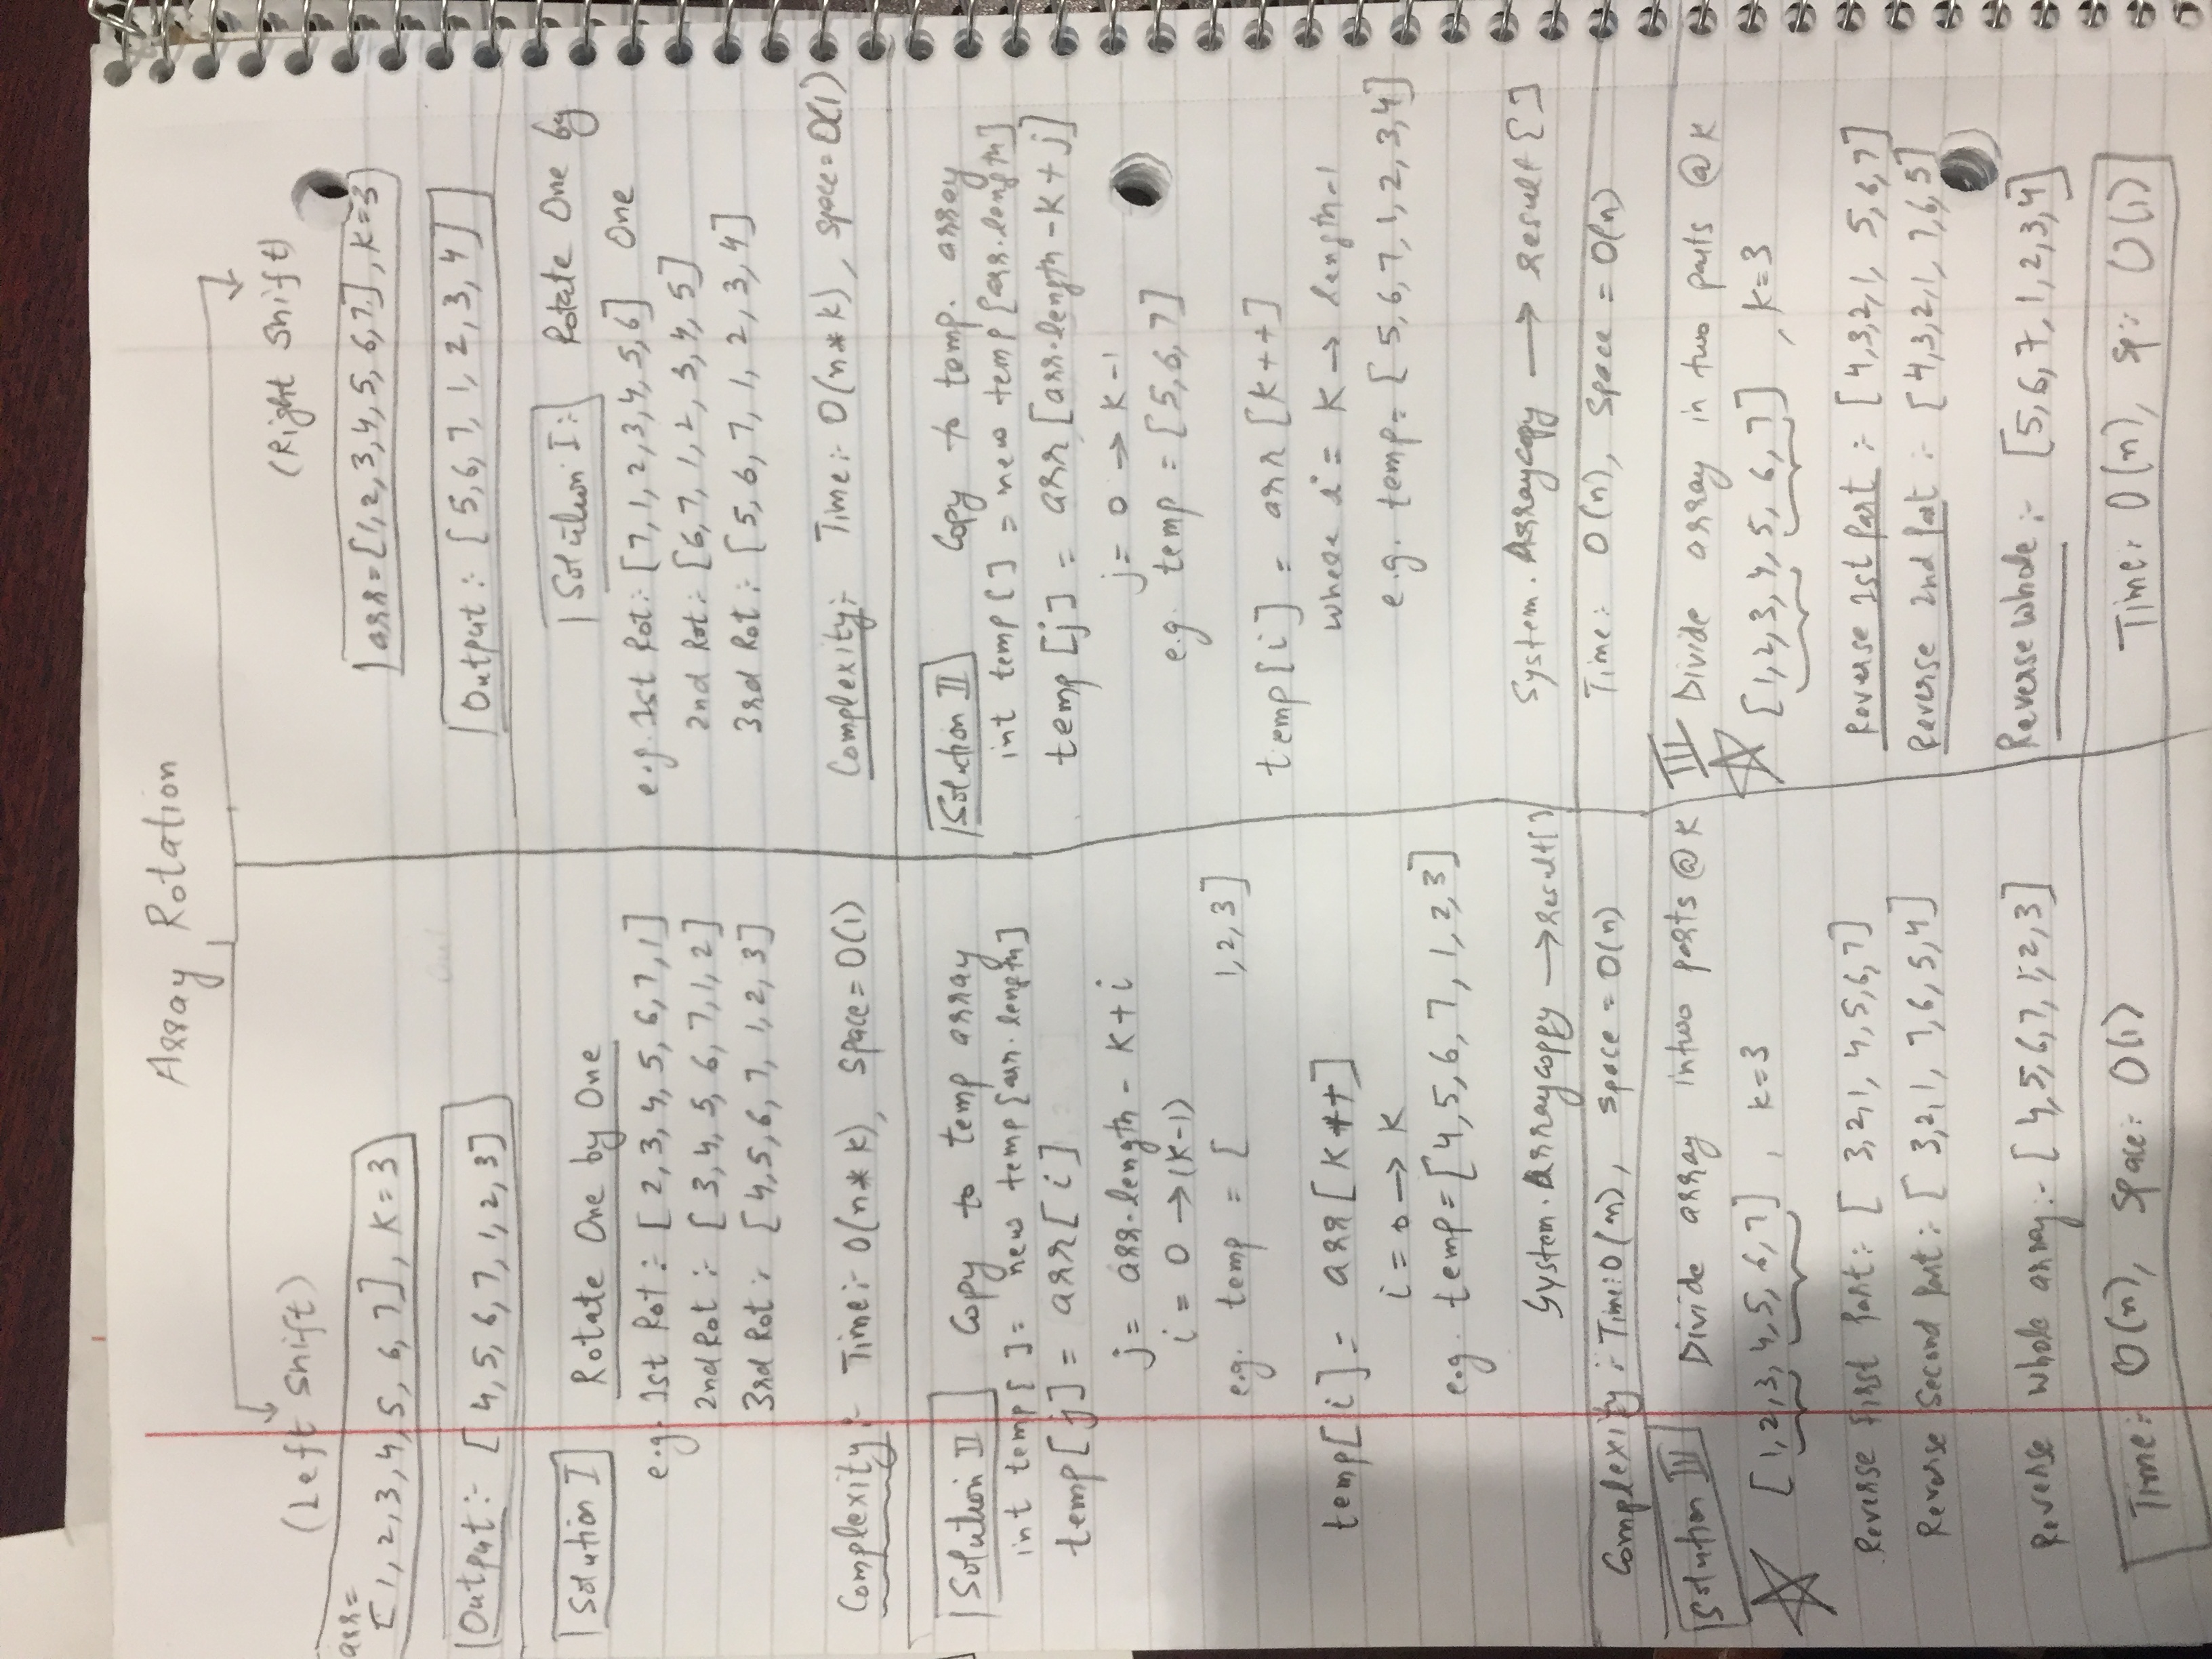 Array Rotation
(Left Shift)
arr=
[1, 2, 3, 4, 5, 6, 7], K = 3
Output :- [4, 5, 6, 7, 1, 2, 3]
Solution I Rotate One by One
e.g. 1st Rot :- [2, 3, 4, 5, 6, 7, 1]
2nd Rot :- [3, 4, 5, 6, 7, 1, 2]
3rd Rot :- [4, 5, 6, 7, 1, 2, 3]
Complexity :- Time :- O(n * K), Space = O(1)
Solution II Copy to temp array
int temp[] = new temp[arr.length]
temp[j] = arr[i]
j = arr.length - K + i
i = 0 → (K-1)
e.g. temp = [ 1, 2, 3]
temp[i] = arr[K++]
i = 0 → K
e.g. temp = [4, 5, 6, 7, 1, 2, 3]
System.Arraycoppy → result[]
Complexity :- Time: O(n), Space = O(n)
Solution III Divide array in two parts @ K
[1, 2, 3, 4, 5, 6, 7], K = 3
Reverse First Part :- [3, 2, 1, 4, 5, 6, 7]
Reverse Second Part :- [3, 2, 1, 7, 6, 5, 4]
Reverse whole array :- [4, 5, 6, 7, 1, 2, 3]
Time :- O(n), Space : O(1)
(Right Shift)
arr = [1, 2, 3, 4, 5, 6, 7], K = 3
Output :- [5, 6, 7, 1, 2, 3, 4]
Solution I :- Rotate One by
e.g. 1st Rot :- [7, 1, 2, 3, 4, 5, 6] One
2nd Rot :- [6, 7, 1, 2, 3, 4, 5]
3rd Rot :- [5, 6, 7, 1, 2, 3, 4]
Complexity :- Time :- O(n * K), Space = O(1)
Solution II Copy to temp. array
int temp[] = new temp[arr.length]
temp[j] = arr[arr.length - K + j]
j = 0 → K-1
e.g. temp = [5, 6, 7]
temp[i] = arr[K++]
where i = K → length-1
e.g. temp = [5, 6, 7, 1, 2, 3, 4]
System.Arraycopy → result[]
Time : O(n), Space = O(n)
III Divide array in two parts @ K
[1, 2, 3, 4, 5, 6, 7], K = 3
Reverse 1st Part :- [4, 3, 2, 1, 5, 6, 7]
Reverse 2nd Part :- [4, 3, 2, 1, 7, 6, 5]
Reverse Whole :- [5, 6, 7, 1, 2, 3, 4]
Time : O(n), Sp :- O(1)